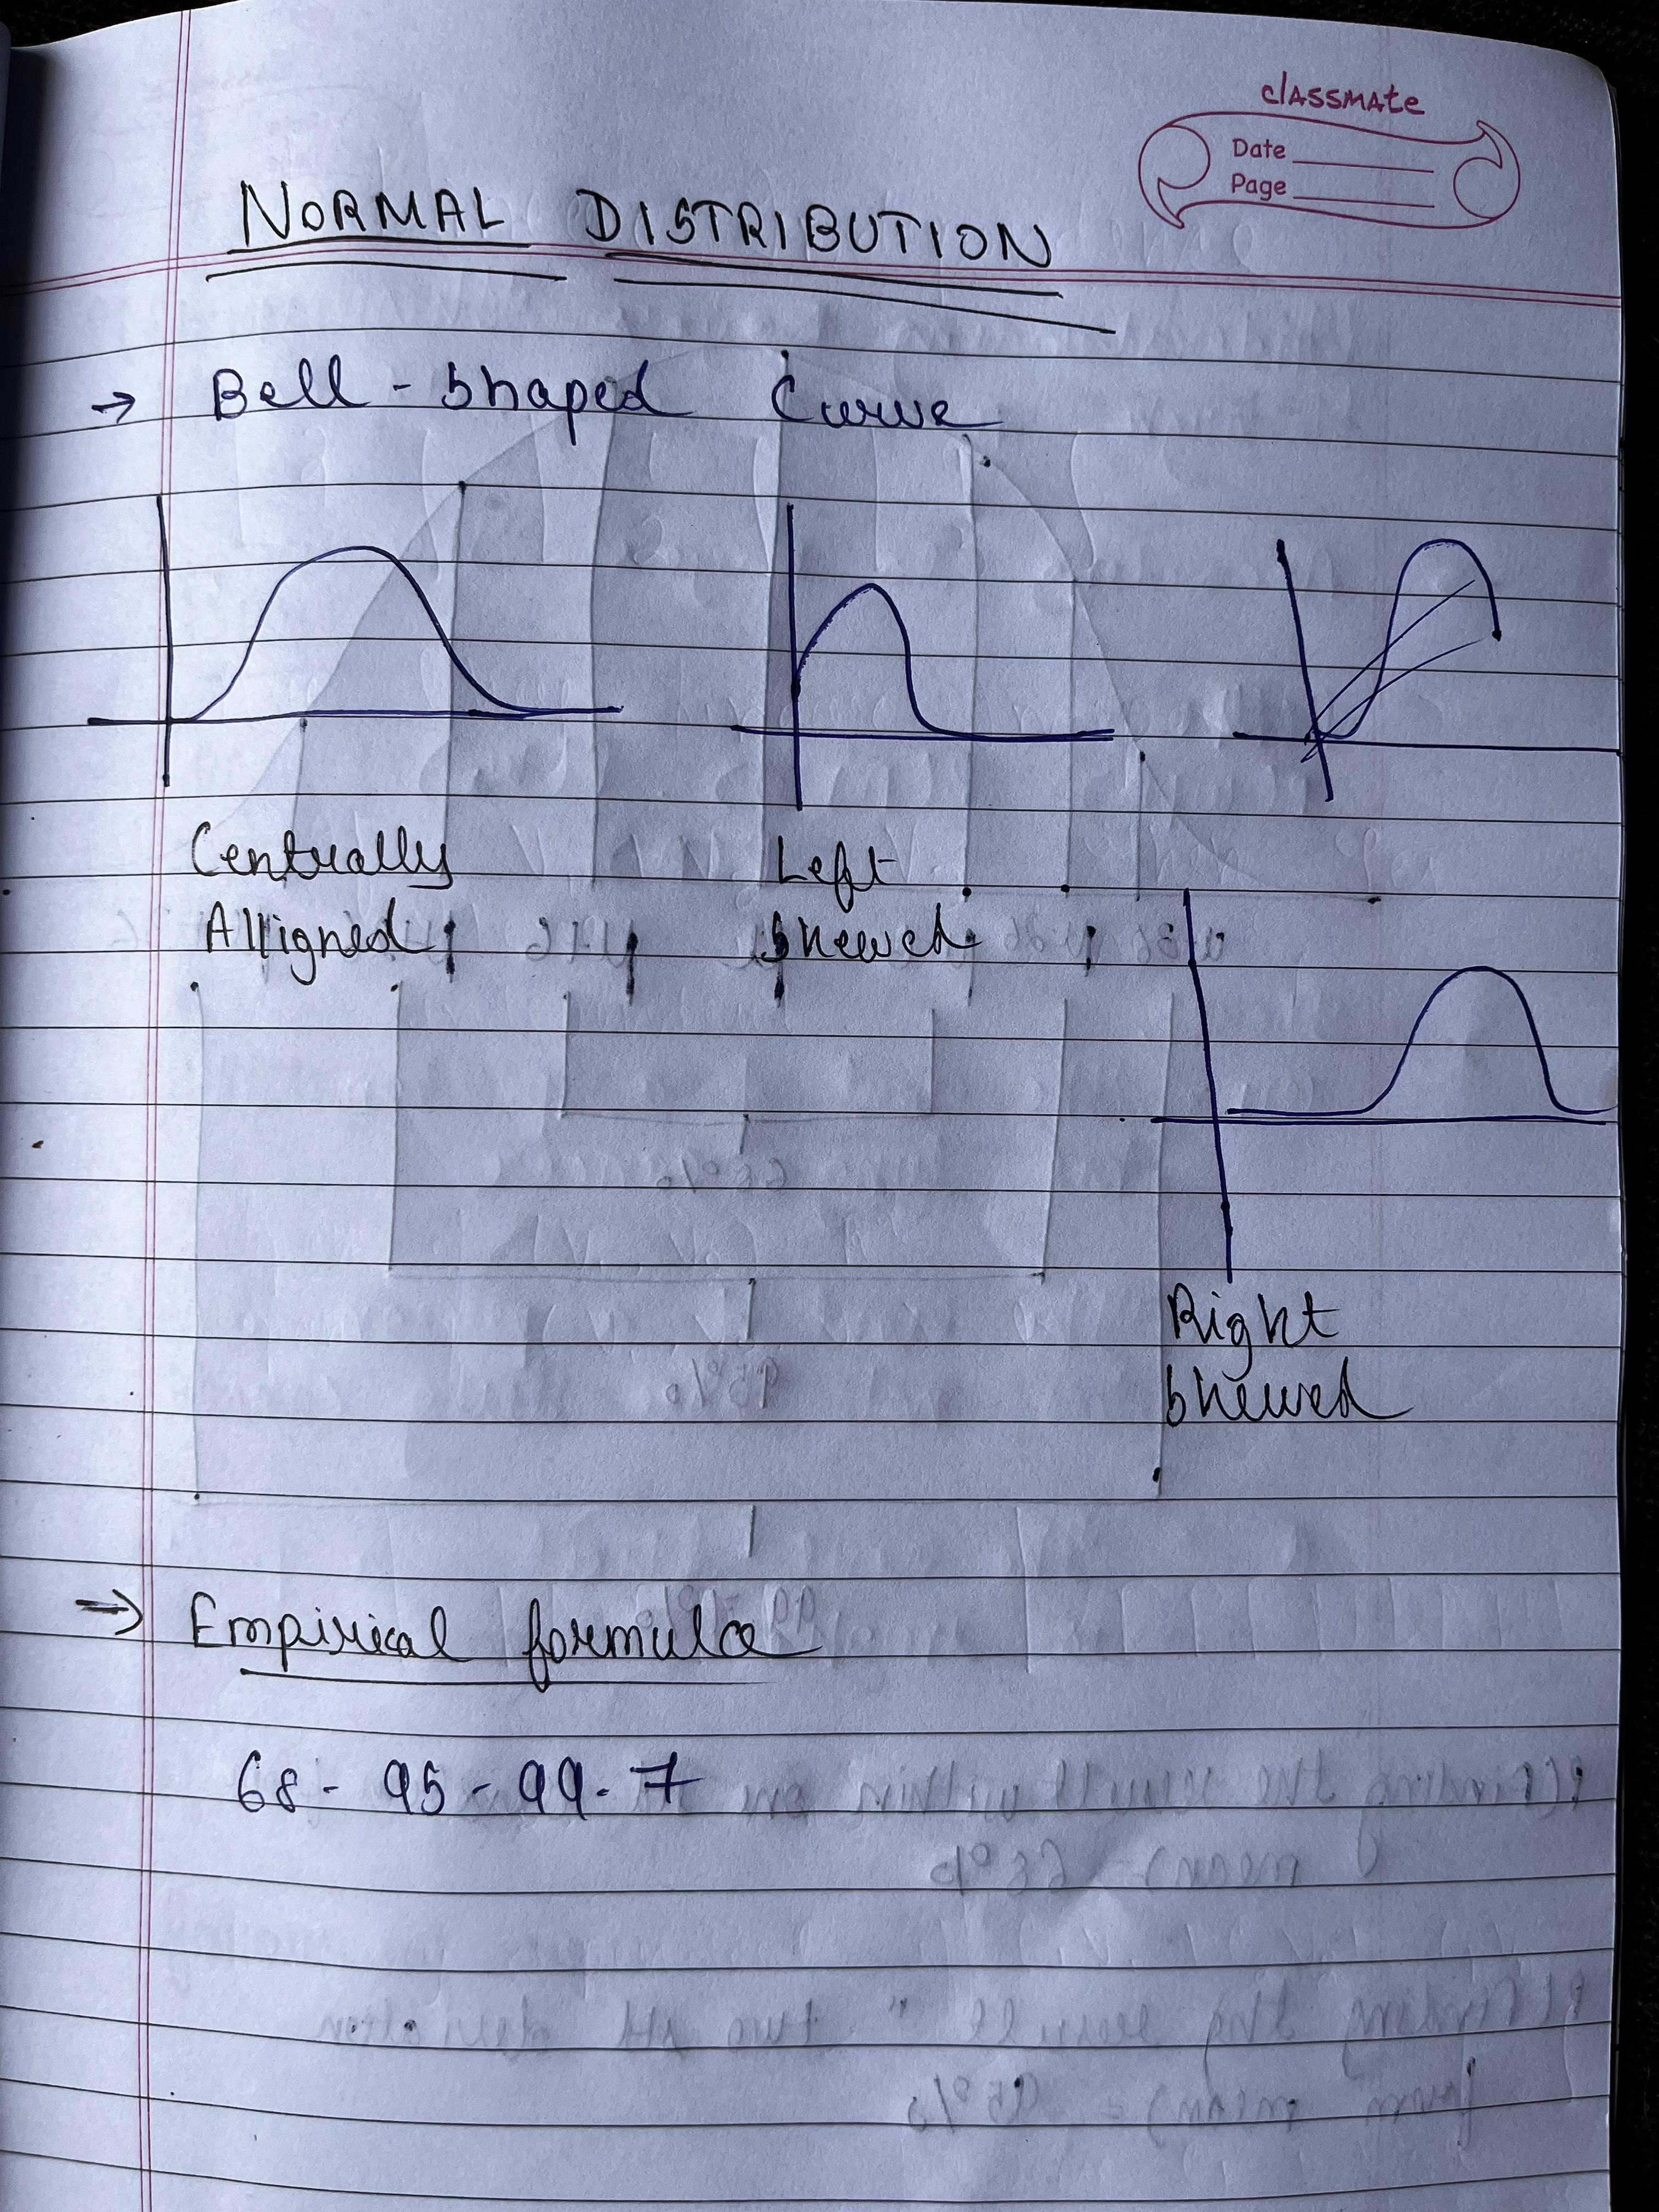 classmate
Date
Page
NORMAL DISTRIBUTION
→ Bell-shaped Curve
Centrally
Alligned
Left
skewed
Right
skewed
⇒ Empirical formula
68 - 95 - 99.7